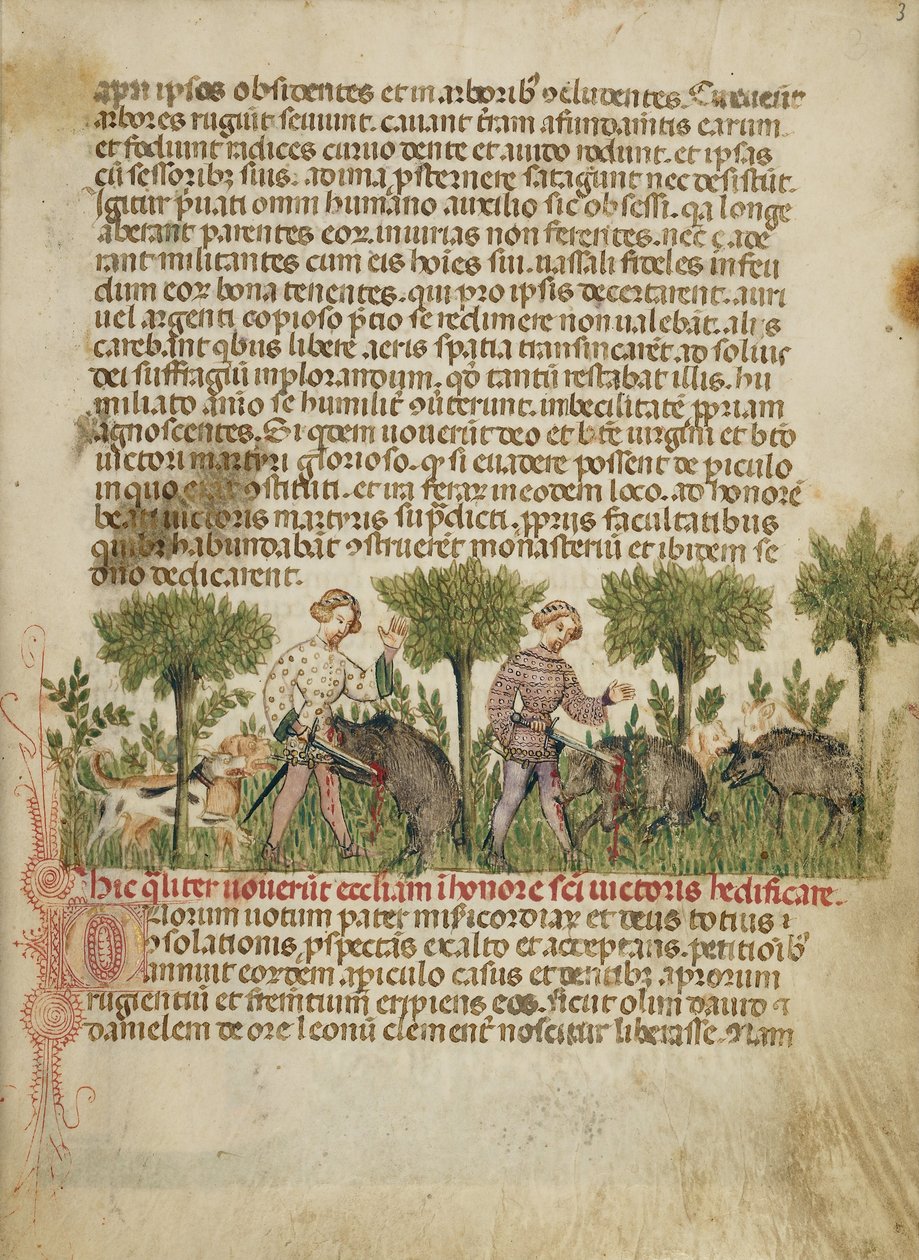 3
apri ipsos obsidentes et in arborib᾽ ꝯcludentes. Circueūt
arbores rugiūt seuiunt. cauant t̄ram afundam̄tis earum
et fodiunt radices curuo dente et auido rodunt. et ipsas
cū sessoribꝫ suis. ad ima ꝓsternere satagunt nec desistūt.
Igitur p̄uati omni humano auxilio sic obsessi. qa longe
aberant parentes eoꝝ. iniurias non ferentes. nec
rant militantes cum eis hoīes sui. uassali fideles in feu
dum eoꝝ bona tenentes. qui pro ipsis decertarent. auri
uel argenti copioso p̄tio se redimere non ualebāt. alijs
carebant qbus libere aeris spatia transmearēt. ad solius
dei suffragiū inplorandum. qd̓ tantū restabat illis. hu
miliato aīo se humilit̄ ꝯu̓terunt. imbecilitatē ꝓpriam
agnoscentes. Si qdem uouerūt deo et b̄te uirgini et b̄to
uictori martyri glorioso. ꝙ si euadere possent de piculo
in quo erāt ꝯstituti. et ira feraꝝ in eodem loco. ad honorē
beati uictoris martyris sup̄dicti. ꝓprijs facultatibus
quibꝫ habundabāt ꝯstruerēt monasteriū et ibidem se
dn̄o dedicarent.
Hic q̄liter uouerūt eccliam ī honore sc̄i uictoris hedificare.
Quorum uotum pater misicordiaꝝ et deus totius
ꝯsolationis ꝓspectās ex alto et acceptans. petitioib᾽
annuit eoꝝdem apiculo casus et dentibꝫ aprorum
rugientiū et frementium eripiens eos. sicut olim dauid ⁊
danielem de ore leonū clement̄ noscitur liberasse. Nam